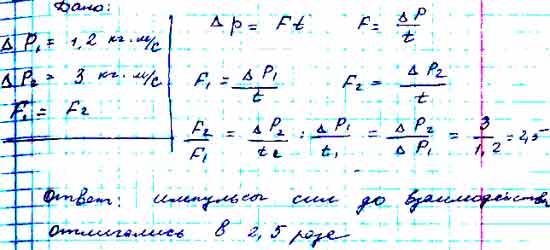 Дано:
Δp = Ft F = Δp/t
ΔP₁ = 1,2 кг·м/с
ΔP₂ = 3 кг·м/с
F₁ = ΔP₁/t F₂ = ΔP₂/t
F₁ = F₂
F₂/F₁ = ΔP₂/t₂ : ΔP₁/t₁ = ΔP₂/ΔP₁ = 3/1,2 = 2,5
Ответ: импульсы сил до взаимодейств
отличались в 2,5 раза